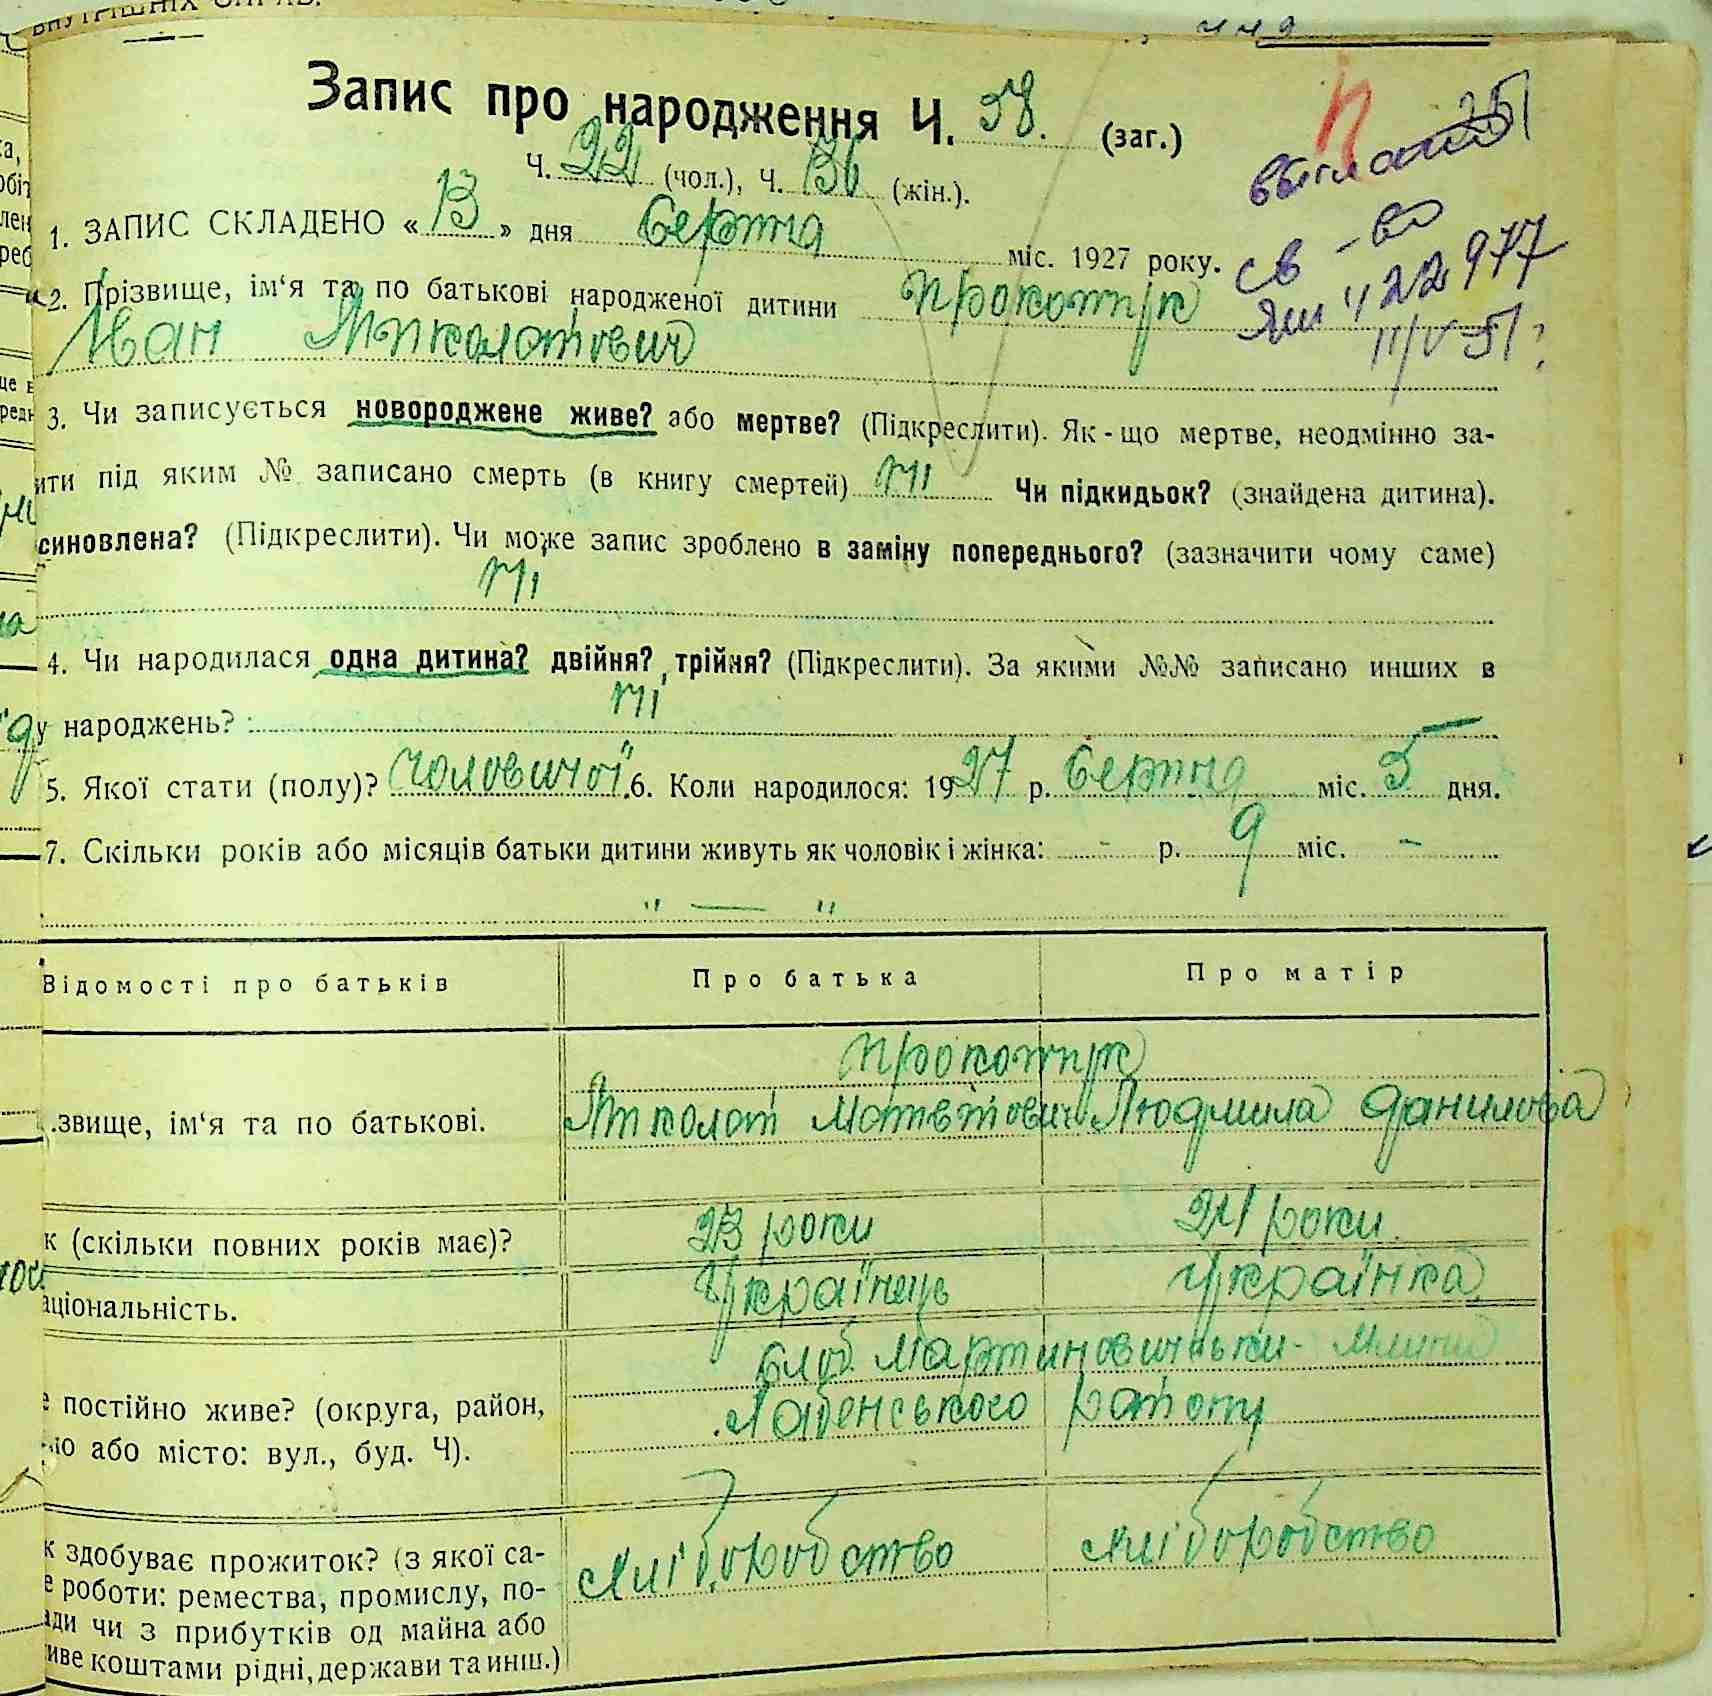 Запис про народження Ч. 58. (заг.)
Ч. 22 (чол.), Ч. 36 (жін.).
1. ЗАПИС СКЛАДЕНО « 13 » дня серпня міс. 1927 року.
2. Прізвище, ім'я та по батькові народженої дитини Прокопчук
Іван Миколайович
св-во
ЯШ 422977
3. Чи записується новороджене живе? або мертве? (Підкреслити). Як-що мертве, неодмінно за-
ити під яким № записано смерть (в книгу смертей) ні Чи підкидьок? (знайдена дитина).
синовлена? (Підкреслити). Чи може запис зроблено в заміну попереднього? (зазначити чому саме)
ні
4. Чи народилася одна дитина? двійня? трійня? (Підкреслити). За якими №№ записано инших в
у народжень? ні
5. Якої стати (полу)? чоловичої 6. Коли народилося: 1927 р. серпня міс. 5 дня.
7. Скільки років або місяців батьки дитини живуть як чоловік і жінка: - р. 9 міс. -
" — "
Відомості про батьків Про батька Про матір
звище, ім'я та по батькові.
Миколай Матвійович Людмила Данилова
к (скільки повних років має)? 23 роки 21 роки.
аціональність. Українець Українка
слоб. Мартиновичськи-
е постійно живе? (округа, район, району
ло або місто: вул., буд. Ч).
к здобуває прожиток? (з якої са- хліборобство хліборобство
е роботи: ремества, промислу, по-
ади чи з прибутків од майна або
иве коштами рідні, держави та инш.)